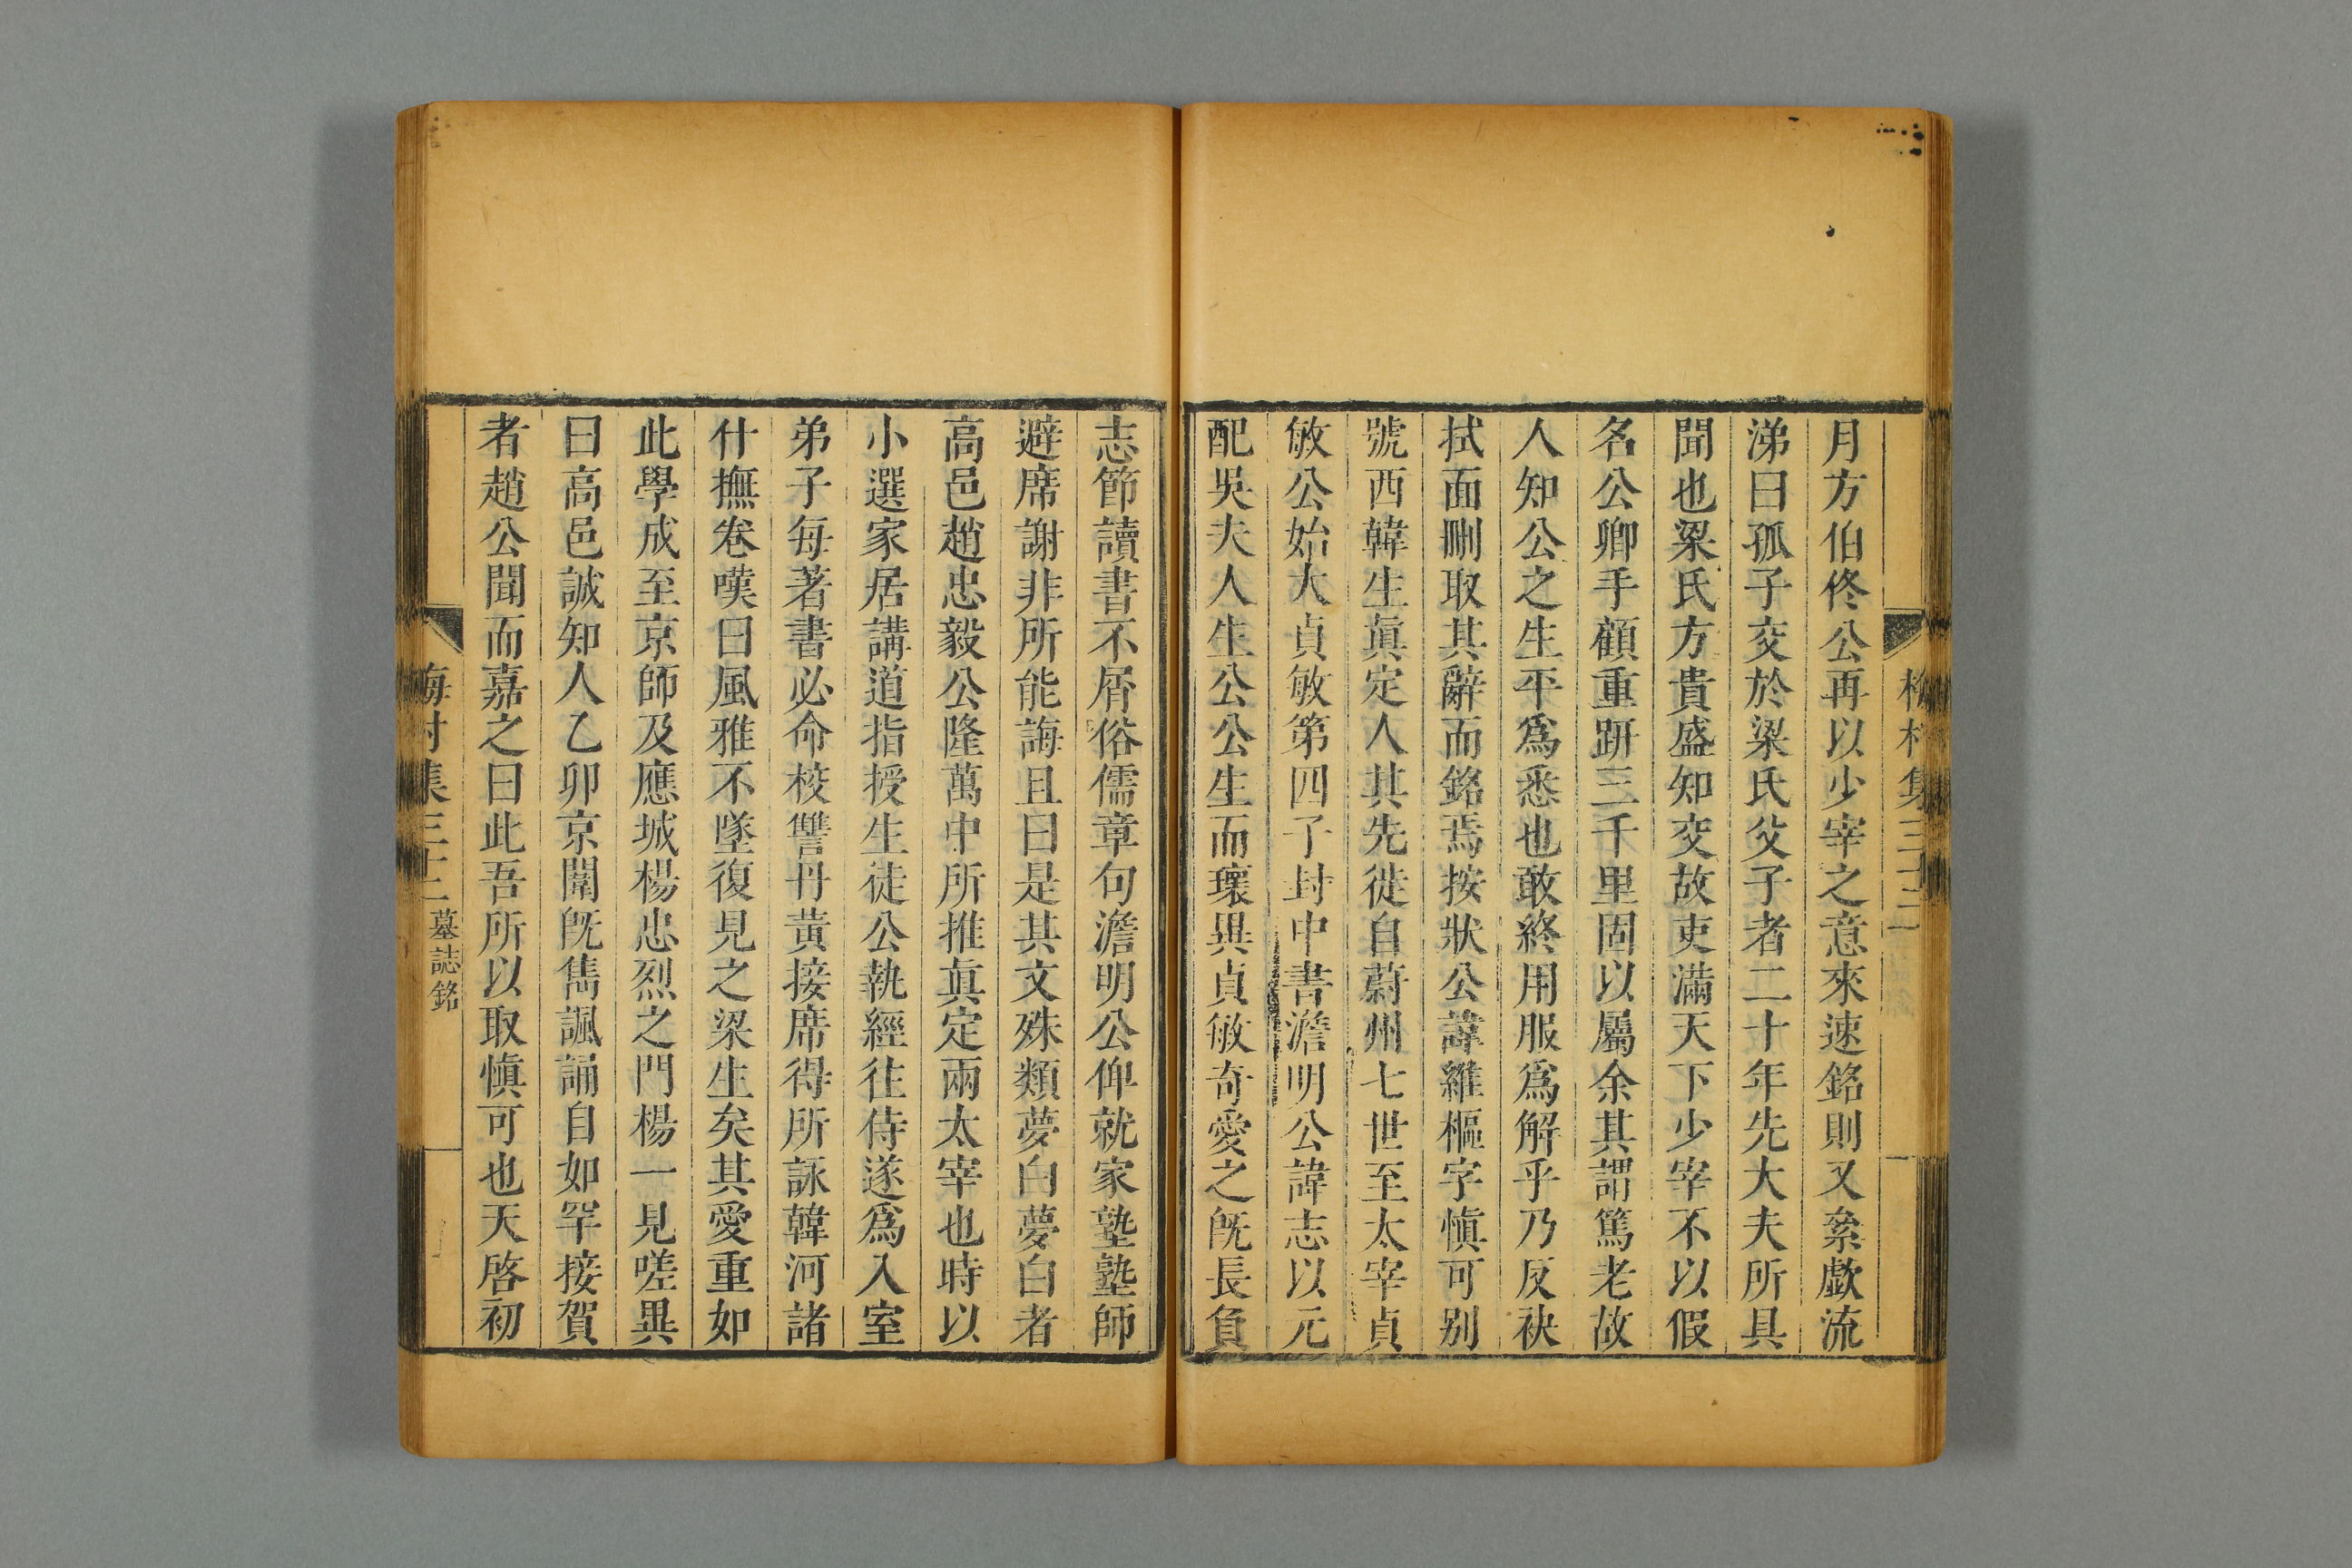 梅村集三十二
月方伯佟公再以少宰之意來速銘則又絫歔流
涕曰孤子交於梁氏父子者二十年先大夫所具
聞也梁氏方貴盛知交故吏滿天下少宰不以假
名公卿手顧重趼三千里固以屬余其謂篤老故
人知公之生平爲悉也敢終用服爲解乎乃反袂
拭面刪取其辭而銘焉按狀公諱維樞字愼可别
號西韓生眞定人其先徙自蔚州七世至太宰貞
敏公始大貞敏第四子封中書澹明公諱志以元
配吳夫人生公公生而瓌異貞敏奇愛之旣長負
志節讀書不屑俗儒章句澹明公仰就家塾塾師
避席謝非所能誨且曰是其文殊類夢白夢白者
高邑趙忠毅公隆萬中所推眞定兩太宰也時以
小選家居講道指授生徒公執經往侍遂爲入室
弟子每著書必命校讐丹黃接席得所詠韓河諸
什撫卷嘆曰風雅不墜復見之梁生矣其愛重如
此學成至京師及應城楊忠烈之門楊一見嗟異
曰高邑誠知人乙卯京闈旣雋諷誦自如罕接賀
者趙公聞而嘉之曰此吾所以取愼可也天啓初
梅村集三十二 墓誌銘